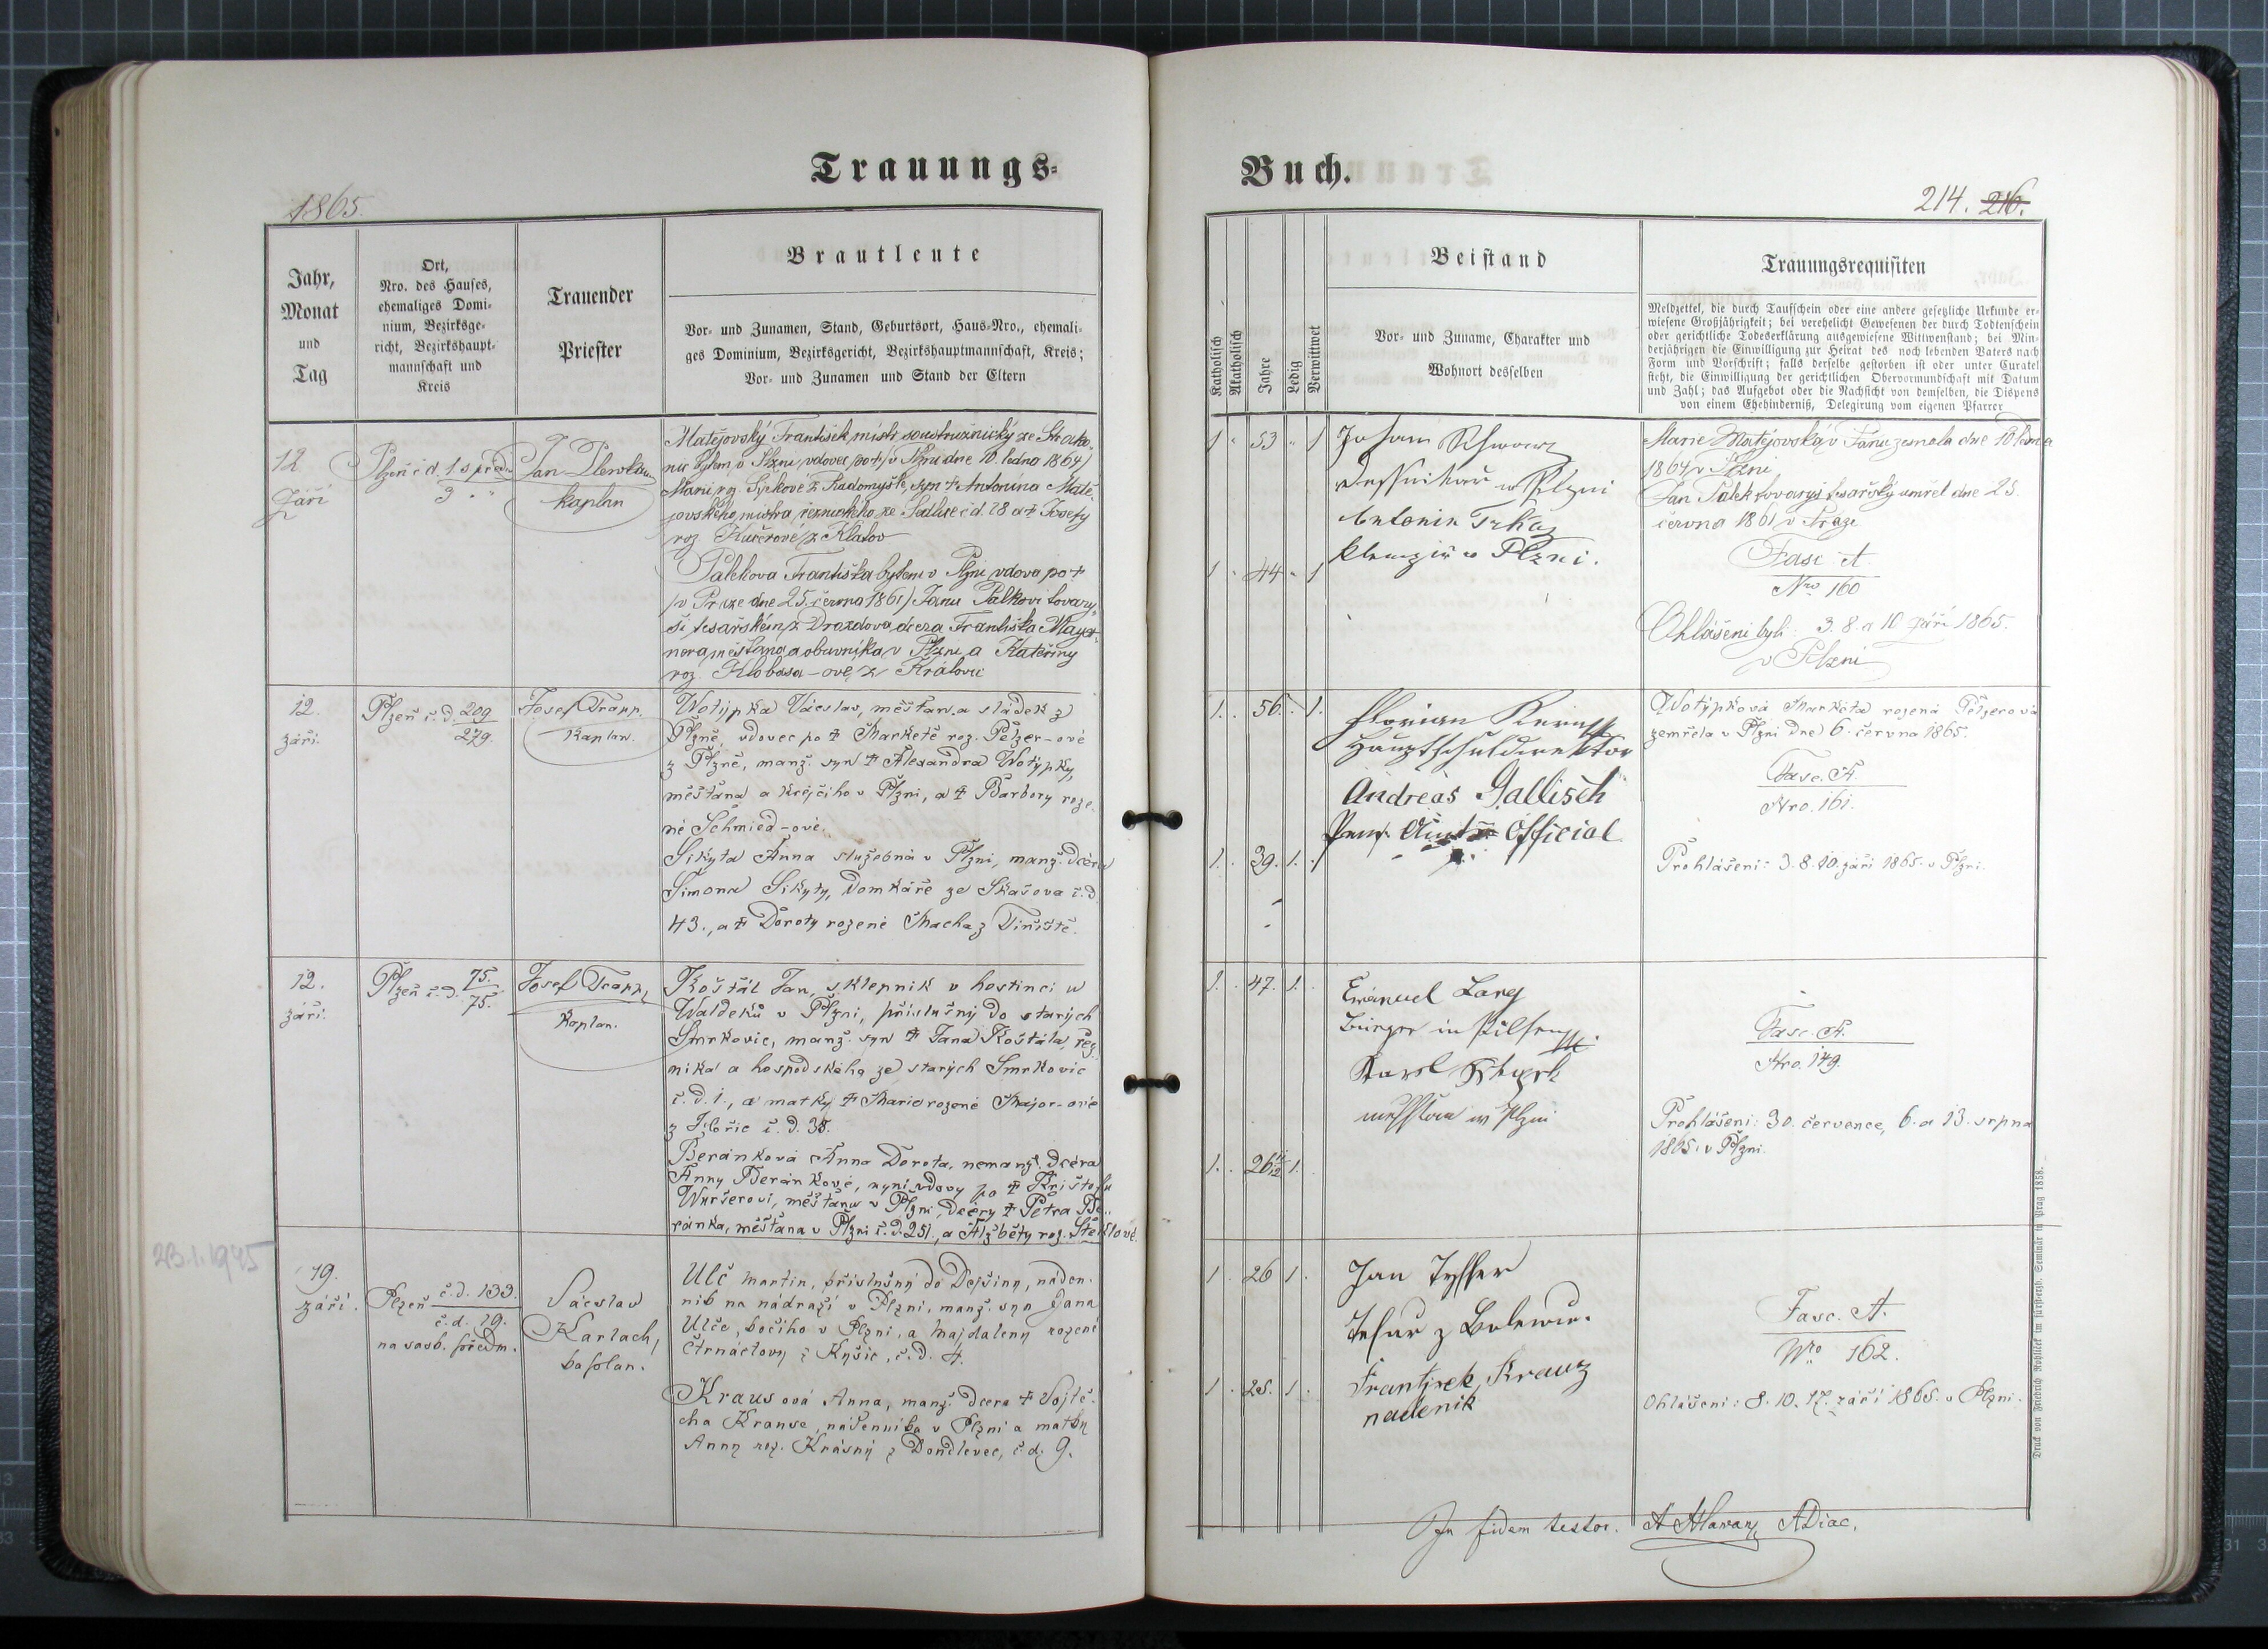 Trauungs-
1865.
Jahr,
Monat
und
Tag
Ort,
Nro. des Hauses,
ehemaliges Domi-
nium, Bezirksge-
richt, Bezirkshaupt-
mannschaft und
Kreis
Trauender
Priester
Brautleute
Vor- und Zunamen, Stand, Geburtsort, Haus-Nro., ehemali-
ges Dominium, Bezirksgericht, Bezirkshauptmannschaft, Kreis;
Vor- und Zunamen und Stand der Eltern
12
Září
Plzeň č d. 1 s předm
3
Jan
kaplan
Matějovský František, mistr soustružnický ze Strako-
nic bytem v Plzni, vdovec po † (v Plzni dne 10. ledna 1864)
Marii roz. z Radomyšle, syn † Antonína Matě-
jovského, mistra řeznického ze Sedlice č d. 28 a † Josefy
roz. z Klatov
Palkova Františka bytem v Plzni, vdova po †
(v Praze dne 25. června 1861) Janu Palkovi tovary-
ši tesařském z Drozdova, dcera Františka Mayer-
nera, měšťana a obuvníka v Plzni a Kateřiny
roz. Klobasa-ové z Královic
12.
září.
Plzeň č. d. 209
279.
Josef Trapp.
Kaplan.
Wotýpka Václav, měšťan a sládek z
Plzně, vdovec po † Marketě roz. Pelzer-ové
z Plzně, manž. syn † Alexandra Wotýpky,
měšťana a krejčího v Plzni, a † Barbory roze-
né Schmied-ové.
Sikyta Anna služebná v Plzni, manž. dcéra
Šimona Sikyty, domkáře ze Skašova č. d.
43., a † Doroty rozené Macha z Tiniště.
12.
září.
Plzeň č. d. 75.
75.
Josef Trapp,
Kaplan.
Koštál Jan, sklepník v hostinci u
Waldeků v Plzni, příslušný do starých
Smrkovic, manž. syn † Jana Koštála, řez-
níka a hospodského ze starých Smrkovic
č. d. 1., a matky † Marie rozené Major-ové
z č. d. 35.
Beránková Anna Dorota, nemanž. dcéra
Anny Beránkové, nyní vdovy po † Krištofu
Wuršerovi, měšťanu v Plzni, dcéry † Petra Be-
ránka, měšťana v Plzni č. d. 251., a Alžběty roz. Steklové.
23.1.1945
19.
září.
Plzeň č. d. 133.
č. d. 19.
na sasb. předm.
Václav
Karlach,
kaplan.
Ulč Martin, příslušný do Dejšiny, náden-
ník na nádraží v Plzni, manž. syn Jana
Ulče, kočího v Plzni, a Majdaleny rozené
Čtrnáctovy z Kyšic, č. d. 4.
Krausová Anna, manž. dcera † Vojtě-
cha Krause, nádenníka v Plzni a matky
Anny roz. Krásný z Doudlevec, č. d. 9.
Buch.
214. 216.
Katholisch
Akatholisch
Jahre
Ledig
Verwittwet
Beistand
Vor- und Zuname, Charakter und
Wohnort desselben
Trauungsrequisiten
Meldzettel, die durch Taufschein oder eine andere gesetzliche Urkunde er-
wiesene Großjährigkeit; bei verehelicht Gewesenen der durch Todtenschein
oder gerichtliche Todeserklärung ausgewiesene Wittwenstand; bei Min-
derjährigen die Einwilligung zur Heirat des noch lebenden Vaters nach
Form und Vorschrift; falls derselbe gestorben ist oder unter Curatel
steht, die Einwilligung der gerichtlichen Obervormundschaft mit Datum
und Zahl; das Aufgebot oder die Nachsicht von demselben, die Dispens
von einem Ehehinderniß, Delegirung vom eigenen Pfarrer
1 53 1
Johann Schwarz
w Plzni
Antonin Trkaz
w Plzni.
1 44 1
Marie Matějovská v Plzni zemřela dne 10 ledna
1864 v Plzni
Jan Palek tovaryš tesařský umřel dne 25.
června 1861 v Praze
Fasc A.
Nro 160
Ohlášeni byli: 3. 8. a 10 září 1865.
v Plzni
1. 56. 1.
Florian
Hauptschuldirektor
Andreas Gallisch
Pens. Official
1. 39. 1.
Wotýpková Markéta rozená Pelzerová
zemřela v Plzni dne 6. června 1865.
Fasc. A.
Nro. 161.
Prohlášeni: 3. 8. 10. září 1865. v Plzni.
1. 47. 1.
Emanuel Lang
Bürger in Pilsen
Karel
w Plzni
1. 26 11/12 1.
Fasc. A.
Nro. 149.
Prohlášeni: 30. července, 6. a 13. srpna
1865. v Plzni.
1 26 1.
Jan
Tesař z Bolewce.
František Krauz
nadenik
1 25. 1.
Fasc. A.
Nro 162.
Ohlášeni: 8. 10. 17. září 1865. v Plzni.
In fidem testor. A Hlavan ADiac.
Druck von Friedrich Rohlicek im fürst-erzb. Seminär in Prag 1858.